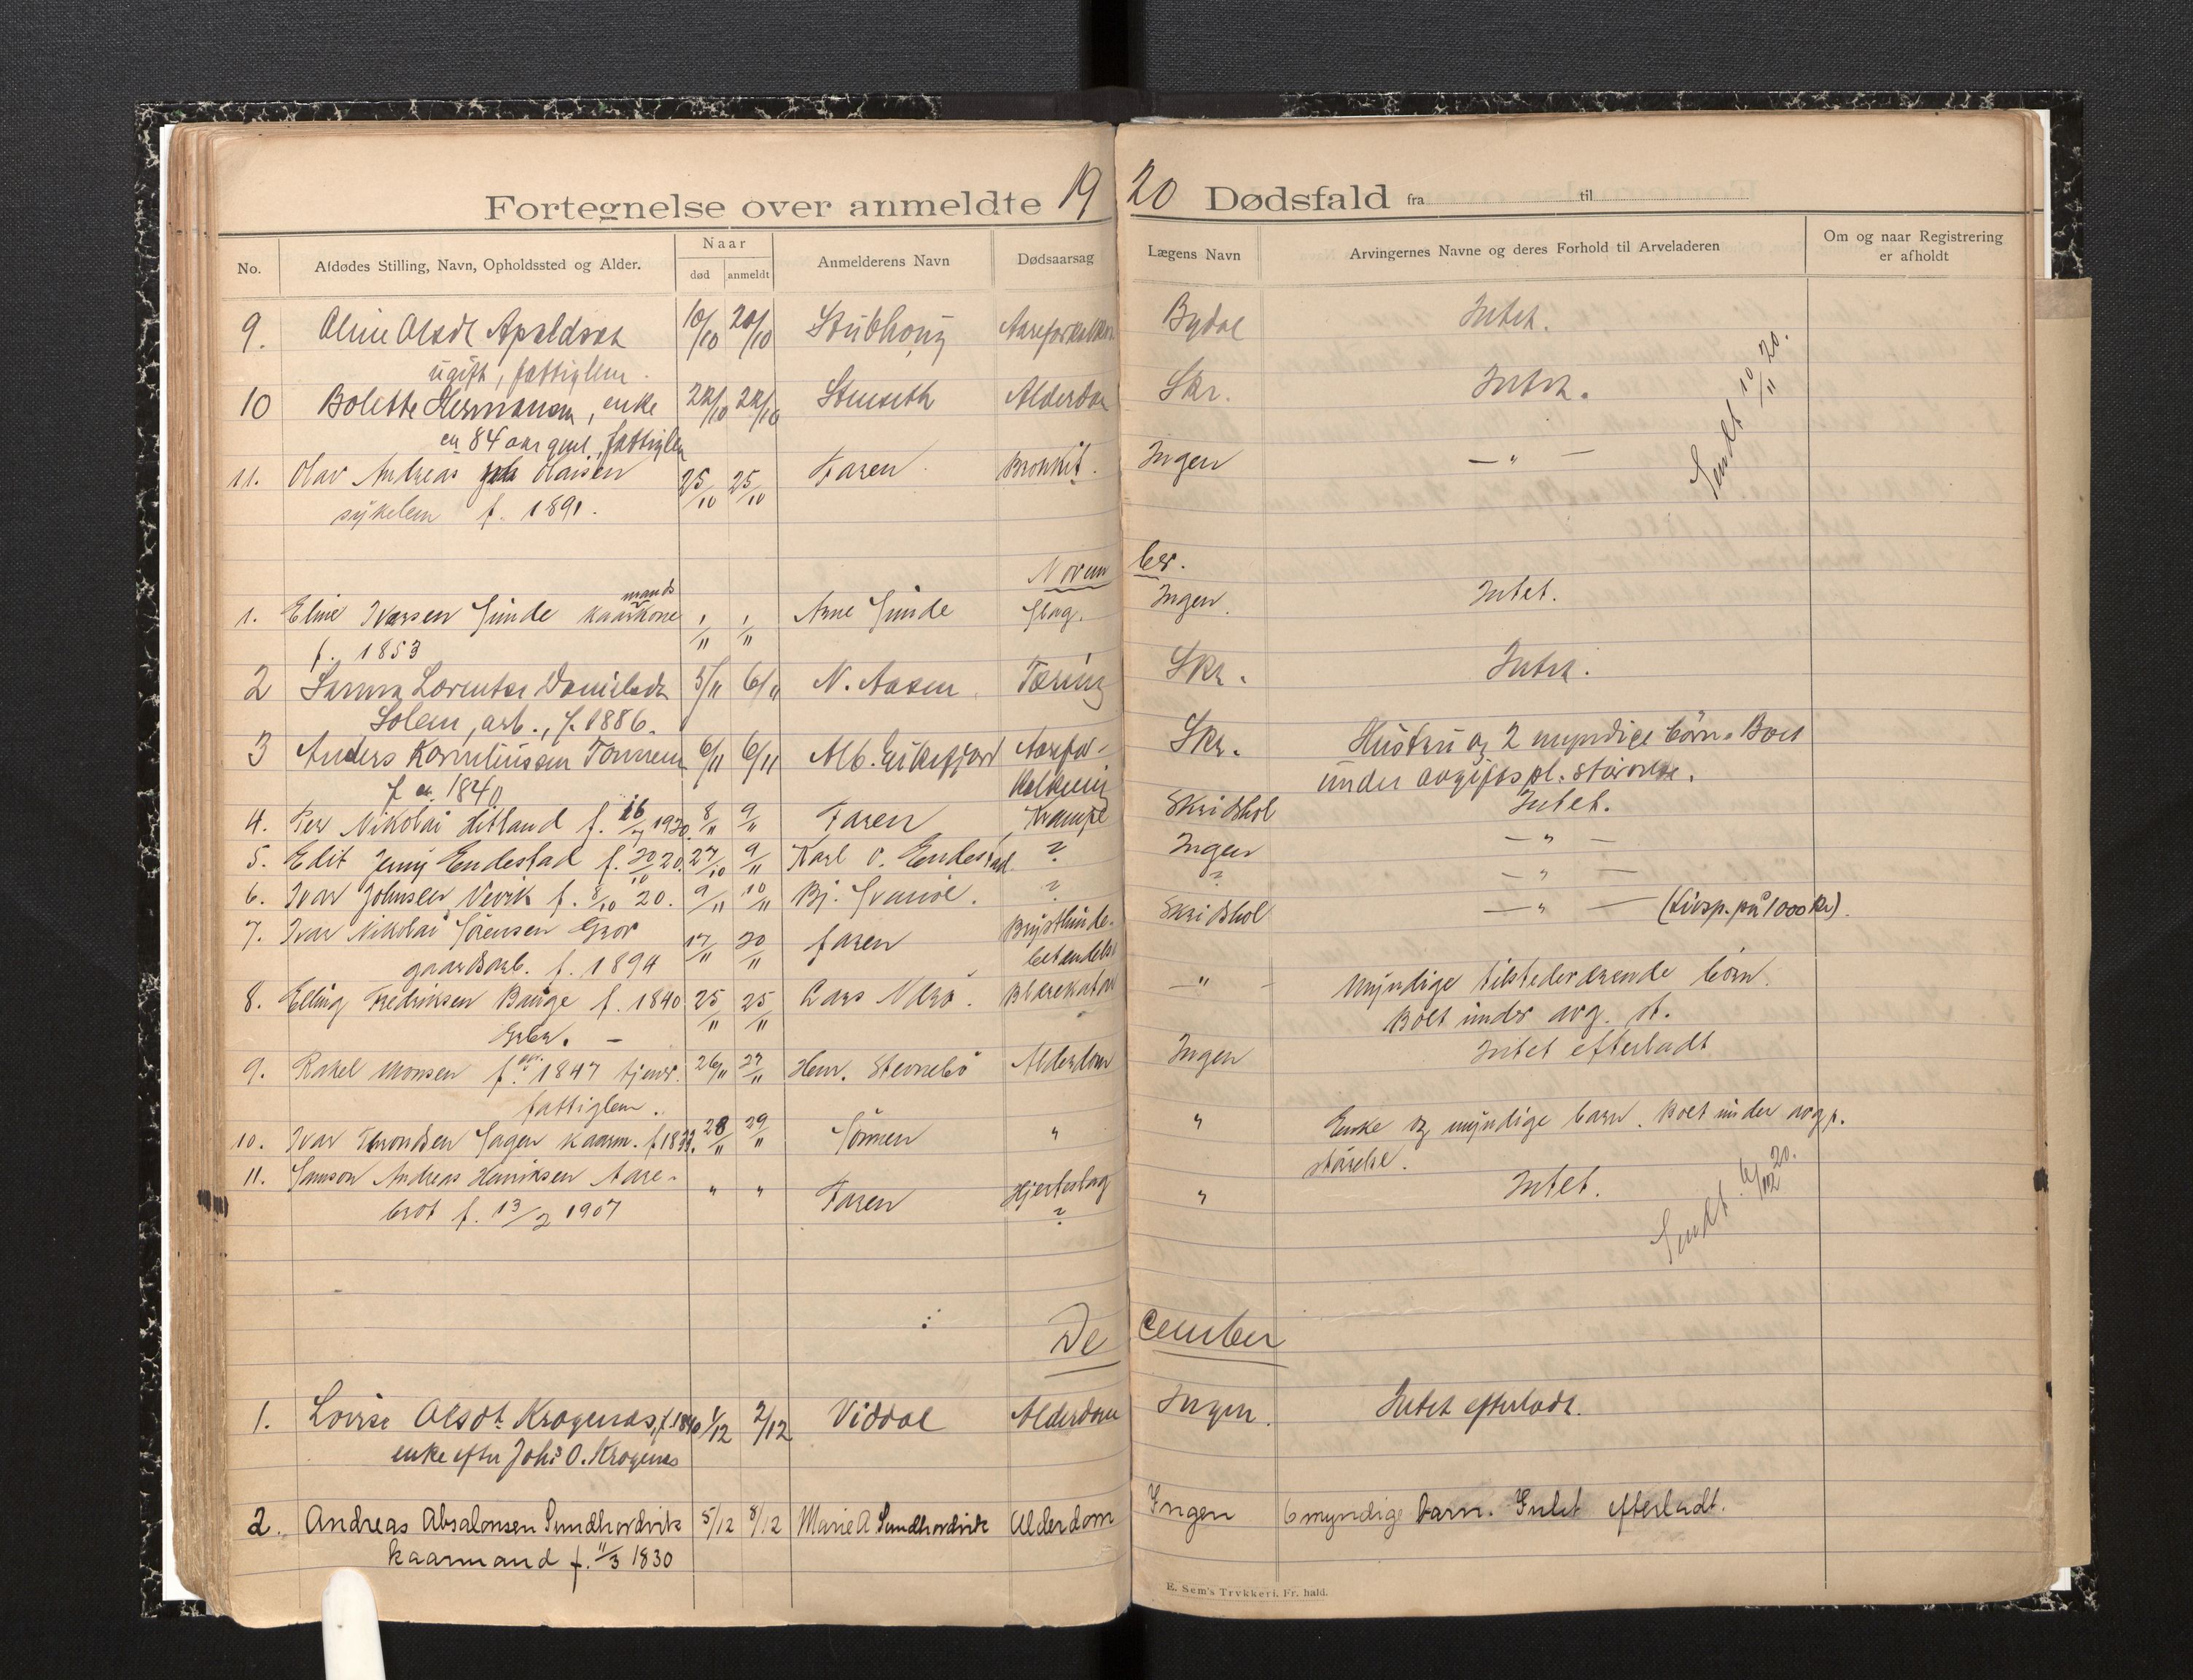 Fortegnelse over anmeldte 1920 Dødsfald fra til
No. Afdødes Stilling, Navn, Opholdssted og Alder. Naar død anmeldt Anmelderens Navn Dødsaarsag Lægens Navn Arvingernes Navne og deres Forhold til Arveladeren Om og naar Registrering er afholdt
9. Oline Olsdt Apaldset 10/10 20/10 Stubhoug Aareforkalkn. Bydal Intet.
ugift, fattiglem.
10 Bolette Hermansen, enke 22/10 22/10 Stenseth Alderdom Skr. Intet.
ca 84 aar gml., fattiglem
11. Olav Andreas Olaisen 25/10 25/10 Faren Bronkit. Ingen — " —
sykelem f. 1891.
Sendt 10/11 20.
November.
1. Eline Iversen Sunde kaarmandskone 1/11 1/11 Arne Sunde Slag. Ingen. Intet.
f. 1853
2 Sanna Lorentse Danielsdt 5/11 6/11 N. Aasen Tæring Skr. Intet.
Solem, arb., f. 1886.
3 Anders Korneliussen Tonnem 6/11 6/11 Alb. Eikefjord Aarefor- Skr. Hustru og 2 myndige børn. Boet
f ca. 1840 kalkning under avgiftspl. størrelse.
4. Per Nikolai Hitland f. 16/7 1920. 8/11 9/11 Faren Krampe Skridshol Intet.
5. Edit Jenny Endestad f. 20/10 20. 27/10 9/11 Karl O. Endestad ? Ingen — " —
6. Ivar Johnsen Vevik f. 8/10 20. 9/11 10/11 Bj. Svanöe. ? ? — " —
7. Ivar Nikolai Sørensen Grov 17/11 20/11 faren Brysthinde- Skridshol — " — (Livsp. på 1000 Kr).
gaardsarb. f. 1894 betændelse
8. Elling Fredriksen Bauge f. 1840 25/11 25/11 Lars Nærö. Blærekatar — " — Myndige tilstedeværende børn.
Grbr. — Boet under avg. st.
9. Rakel Monsen f. ca. 1847 tjener. 26/11 27/11 Henr. Stavnebö Alderdom Ingen Intet efterladt
fattiglem.
10. Ivar Throndsen Hagen kaarm. f 1833. 28/11 29/11 Sønnen " " Enke og myndige barn. Boet under avg.p.
størrelse.
11. Samson Andreas Henriksen Aare- " " Faren Hjerteslag " Intet.
brot f. 13/2 1907 ?
Sendt 6/12 20.
December
1. Lovise Olsdt. Krogenæs, f. 1840 1/12 2/12 Viddal Alderdom Ingen. Intet efterladt.
enke efter Johs O. Krogenæs
2. Andreas Absalonsen Sundhordvik 5/12 8/12 Marie A Sundhordvik Alderdom Ingen 6 myndige barn. Intet efterladt.
kaarmand f. 11/3 1830
E. Sem's Trykkeri. Fr. hald.